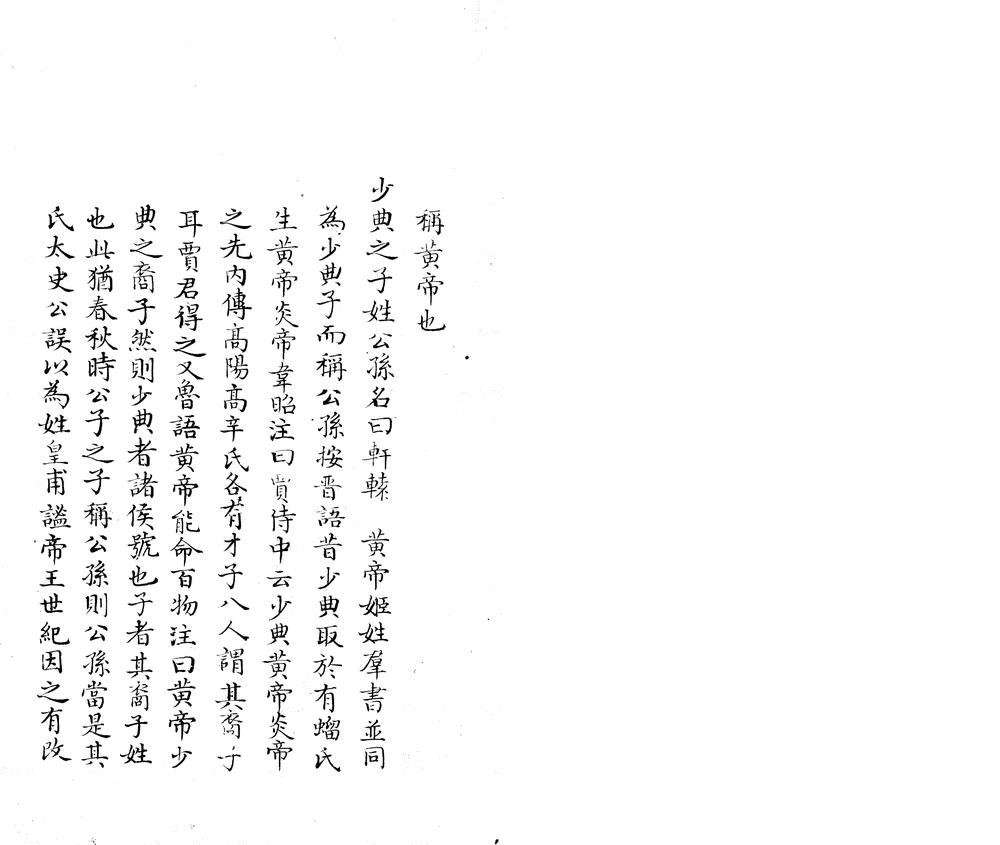 稱黃帝也
少典之子姓公孫名曰軒轅　黃帝姬姓羣書並同
為少典子而稱公孫按晋語昔少典取於有蟜氏
生黃帝炎帝韋昭注曰賈侍中云少典黃帝炎帝
之先内傳髙陽髙辛氏各有才子八人謂其裔子
耳賈君得之又魯語黃帝能命百物注曰黃帝少
典之裔子然則少典者諸侯號也子者其裔子姓
也此猶春秋時公子之子稱公孫則公孫當是其
氏太史公誤以為姓皇甫謐帝王世紀因之有改